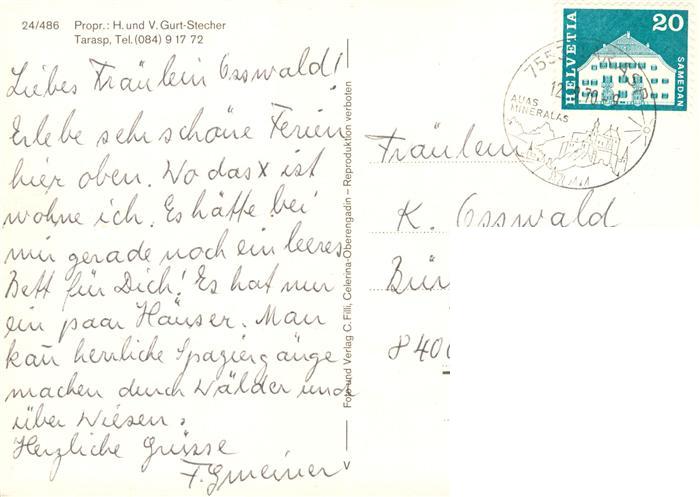 24/486 Propr.: H. und V. Gurt-Stecher
Tarasp, Tel. (084) 9 17 72
Liebes Fräulein Osswald!
Erlebe sehr schöne Ferien
hier oben. Wo das x ist
wohne ich. Es hätte bei
mir gerade noch ein leeres
Bett für Dich! Es hat nur
ein paar Häuser. Man
kan herrliche Spaziergänge
machen durch Wälder und
über Wiesen.
Herzliche Grüsse
F. Gmeiner
Foto und Verlag C. Filli, Celerina-Oberengadin – Reproduktion verboten
HELVETIA
20
SAMEDAN
AUAS
MINERALAS
Fräulein
K. Osswald